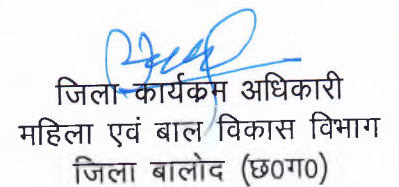 जिला कार्यक्रम अधिकारी
महिला एवं बाल विकास विभाग
जिला बालोद (छ0ग0)